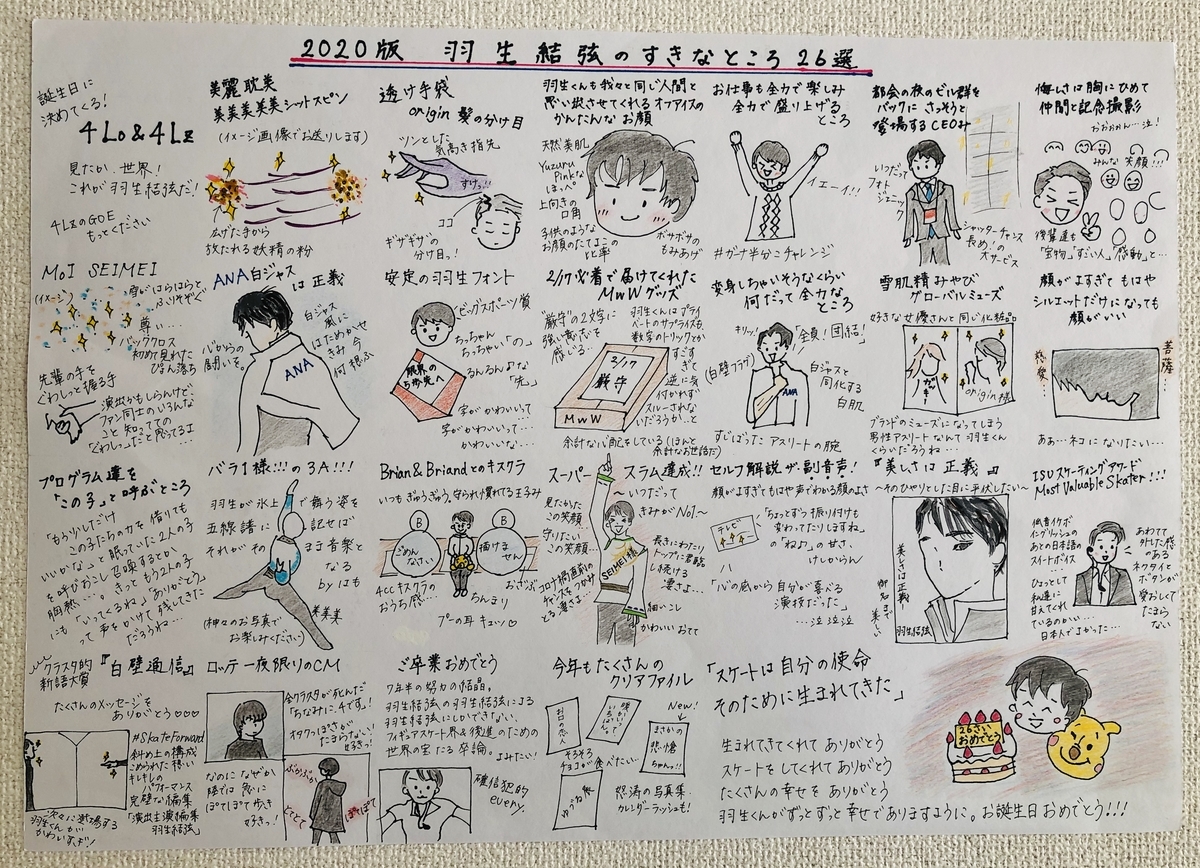 2020版 羽生結弦のすきなところ 26選
誕生日に
決めてくる!
4Lo&4Lz
見たか、世界!
これが羽生結弦だ!
4LzのGOE
もっとください
美麗耽美
美美美美美シットスピン
(イメージ画像でお送りします)
広げた手から
放たれる妖精の粉
透け手袋
origin 髪の分け目
ツンとした
気高き指先
すけっ!!
ココ
ギザギザの
分け目。!
羽生くんも我々と同じ人間と
思い出させてくれるオフアイスの
かんたんな お顔
天然美肌
Yuzuru
Pinkな
ほっぺ
上向きの
口角
子供のような
お顔のたてよこの
比率
ボサボサの
もみあげ
お仕事も全力で楽しみ
全力で盛り上げる
ところ
イエーイ!!
#ガーナ半分こチャレンジ
都会の夜のビル群を
バックに さっそうと
登場するCEOみ
いつだって
フォト
ジェニック
シャッターチャンス
長め!の
大サービス
悔しさは胸にひめて
仲間と記念撮影
みんな 笑顔!!!
後輩達も
"宝物""すごい人""感動"と…
MoI SEIMEI
(イメージ)
雪がはらはらと
尊い…
バッククロス
初めて見れた
先輩の手を
ぐわしっと握る手
演出かもしらんけど、
ファン同士のいろんな
こと 知ってての
ANA白ジャス
は 正義
白ジャス
風に
はためかせ
きみ 今
何 想ふ
心からの
闘いを。
ANA
安定の羽生フォント
ビッグスポーツ賞
ちっちゃん
ちっちゃい「の」
るんるん♪な
「先」
限界の
その先へ
字がかわいいって
字がかわいいって…
かわいいな…
2/17必着で届けてくれた
MwWグッズ
"厳守"の2文字に
強い意志を
感じる…
羽生くんはプライ
ベートのサプライズも、
数字のトリックとか
すごす
ぎて
逆に気
付かれず
スルーされな
いだろうか…と
2/17
厳守
MwW
余計な心配をしている(ほんと
余計なお世話だ)
変身しちゃいそうなくらい
何だって 全力な
ところ
キリッ!
「全員!団結!」
(白壁クラブ)
白ジャスと
同化する
白肌
ANA
すじばった アスリートの腕
雪肌精みやび
グローバルミューズ
好きな女優さんと同じ化粧品
origin 様
ブランドのミューズになってしまう
男性アスリートなんて 羽生くん
くらいだろうね…
顔がよすぎて もはや
シルエットだけになっても
顔がいい
菩薩…
ああ…ネコになりたい…
プログラム達を
「この子」と呼ぶところ
「もう少しだけ
この子たちの力を借りても
いいかな」と眠っていた2人の子
を呼びおこし召喚するとか
胸熱…。きっと もう2人の子
にも「いってくるね」「ありがとう」
って 声をかけて 残してきた
だろうね…
バラ1様!!!の3A!!!
羽生が氷上で舞う姿を
五線譜に記せば
それがそのまま音楽と
なる
byはも
美美美
(神々のお写真で
お楽しみください)
Brian&Briandとのキスクラ
いつもぎゅうぎゅう。守られ慣れてる王子み
B
B
ごめん
なさい
描けま
せん
4CCキスクラの
おうち感…
ちんまり
おざぶ
プーの耳 キュッ♡
スーパー スラム達成!!
~いつだって
きみが No1~
見たかった
この笑顔…
守りたい
この笑顔…
SEIMEI様
長きにわたり
トップに君臨
し続ける
凄さよ…
コロナ禍直前の
チャンスをつかみ
とる凄さ…
細いこし
かわいい おてて
セルフ解説が副音声!
顔がよすぎてもはや声でわかる顔のよさ
テレビ
「ちょっとずつ振り付けも
変わってたりしますね」
の「ね♪」の甘さ、
けしからん
「心の底から自分が喜べる
演技だった」
…泣 泣 泣
『美しさは 正義』
~そのひやりとした目に平伏したい~
美しさは正義
御名まで美しい
羽生結弦
ISUスケーティングアワード
Most Valuable Skater!!!!
低音イケボ
イングリッシュの
あとの日本語の
スイートボイス
…
ひょっとして
私達に
甘えてくれ
ているのかい…
日本人でよかった…
あわてて
外した感の
ある
ネクタイと
ボタンが
愛おしくて
たまら
ない
クラスタ的
新語大賞
『白壁通信』
たくさんのメッセージを
ありがとう♡♡♡
#SkateForward
斜め上の構成
こめられた想い
キレキレの
パフォーマンス
完璧な編集
「演出 主演 編集
羽生結弦」
羽生くんが
かわいすぎ
ロッテ一夜限りのCM
全クラスタが死んだ
「ちなみに、4です。」
オタクっぽさが
たまらない
好きっ!
なのに なぜか
陸では 思いに
ぽてぽて歩き
好きっ!
ぶかぶか
とてとて
ぽてぽて
ご卒業おめでとう
7年半の努力の結晶。
羽生結弦の羽生結弦による
羽生結弦にしかできない、
フィギュアスケート界&後進のための
世界の宝たる 卒論。
よみたい!
確信犯的
every.
今年もたくさんの
クリアファイル
New!
まさかの
悲愴
ちゃん!!
そろそろ
チョコが食べたい…
怒涛の写真集
カレンダーラッシュも!
「スケートは自分の使命
そのために生まれてきた」
生まれてきてくれて ありがとう
スケートをしてくれて ありがとう
たくさんの幸せを ありがとう
羽生くんがずっとずっと幸せでありますように。お誕生日おめでとう!!!
26さい
おめでとう